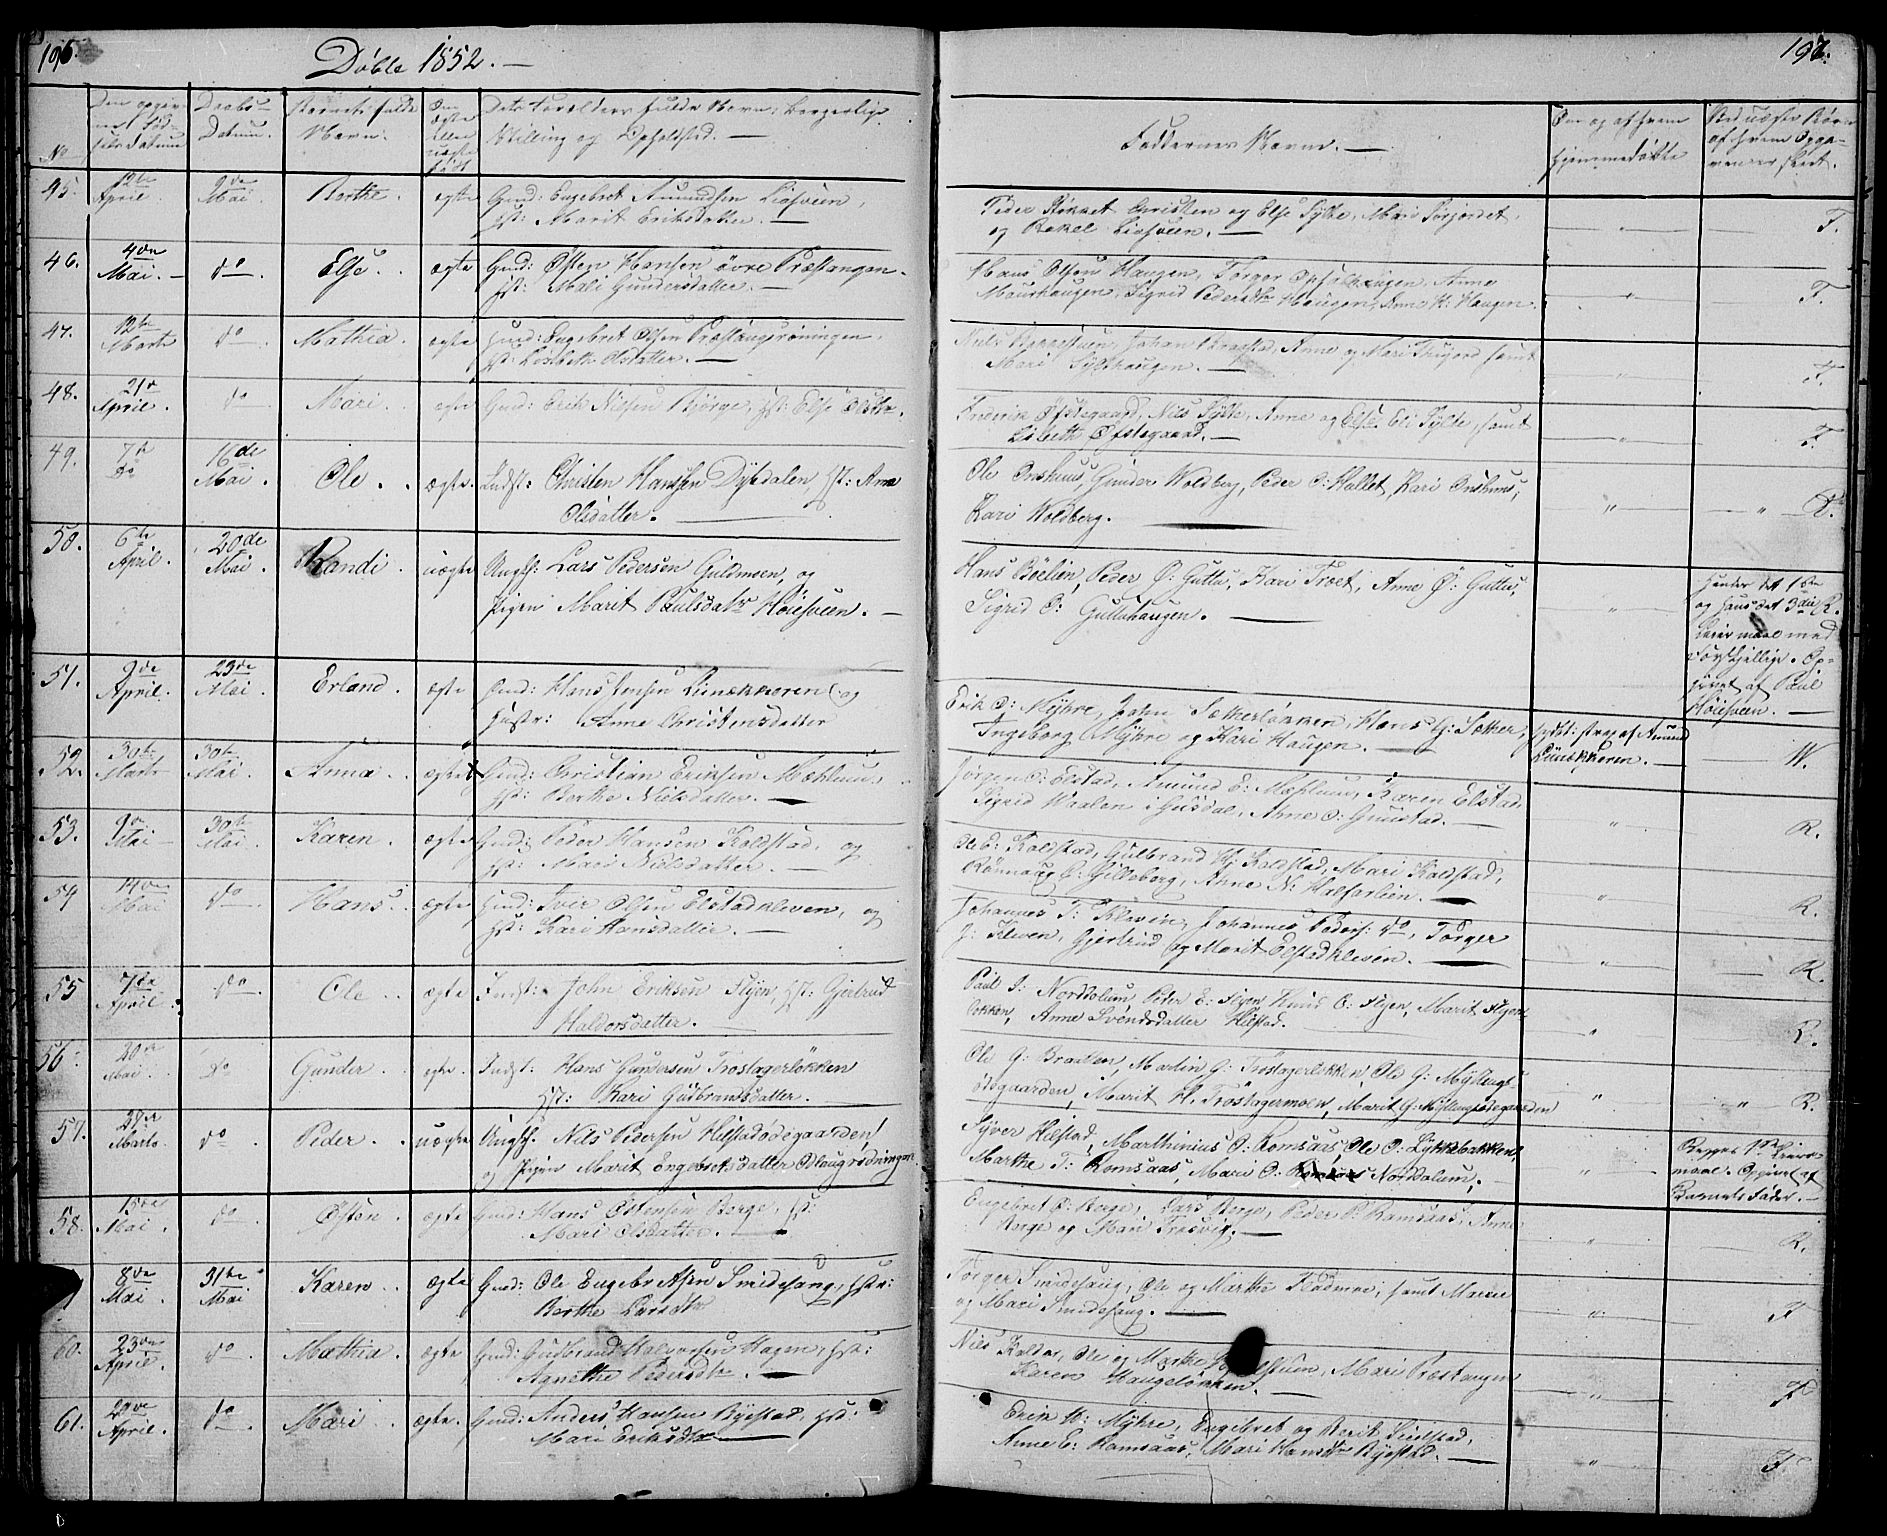 196.
Døbte 1852. —
197.
No
Den opgivne Fødsels Datum
Daabs Datum.
Barnets fulde Navn.
Om ægte eller uægte født
Dets Forældres fulde Navn, borgerlige Stilling og Opholdsted. —
Faddernes Navne. —
Om og af hvem hjemmedøbte
Ved uægte Børn af hvem Opgavener skeet.
45. 12te April. 2den Mai. Berthe. ægte Gmd: Engebret Amundsen Liesveen,
Hst: Marit Eriksdatter. —
Peder Christen og Else Sylte, Mari Sørjordet,
og Rakel Liesveen. — " F.
46. 4de Mai. do. Else. ægte Gmd: Østen Hansen øvre Præstangen.
Hst: Mali Gundersdatter. —
Hans Olsen Haugen, Torger Opsalhaugen, Anne
Maurhaugen, Sigrid Pedersdtr Haugen, Anne H: Haugen. " F.
47. 12te Marts do Mathea. ægte Gmd: Engebret Olsen Præstangsrøningen,
Hst: Lisbeth Olsdatter. —
Niels, Johan Braastad, Anne og Mari samt
Mari Sylthaugen. — " F.
48. 21de April. do. Mari. ægte Gmd: Erik Nielsen Bjørge, Hst: Else Olsdtr.
Frederik Øfstegaard, Nils Sylte, Anne og Else Eli Sylte, samt
Lisbeth Øfstegaard. — " F.
49. 7de do 16de Mai. Ole. ægte. Indst: Christen Hansen Dysedalen, Hst: Anne
Olsdatter. —
Ole Onshuus, Gunder Woldberg, Peder O: Hallet, Kari Onshuus,
Kari Woldberg. — " " R.
50. 6te April. 20de Mai. Randi. uægte Ungk: Lars Pedersen Guldmoen, og
Pigen Marit Paulsdatr Høiesveen. —
Hans Böelien, Peder O: Guttu, Kari Troet, Anne Ø: Guttu,
Sigrid O: Guttuhaugen. — " Hendes det 1ste
og Hans det 3die R.
Leiermaal med
forskjellige. Opgivet af Paul
Høiesveen. —
51. 9de April. 23de Mai. Erland. ægte Gmd: Hans Jensen Lunækkeren og
Hustr: Anne Christensdatter
Erik O: Myhre, John Sækkerløkken, Hans G: Sækker,
Ingeborg Myhre og Kari Haugen. — hjdbt: strax af Amund
Lunækkeren. — W.
52. 30te Marts 30te Mai. Anna. ægte Gmd: Christian Eriksen Mæhlum,
Hst: Berthe Nielsdatter. —
Jørgen O: Elstad, Amund E: Mæhlum, Karen Elstad
Sigrid Waalen i Gusdal, Anne O: Grimstad. — " R.
53. 9de Mai 30te Mai. Karen. ægte Gmd: Peder Hansen Koldstad, og
Hst: Mari Nielsdatter. —
Ole O: Koldstad, Gulbrand H: Koldstad, Mari Koldstad,
Rønnaug O: Gilleberg, Anne N: Halfarlien. — " R.
54 14de Mai do. Hans. ægte Gmd: Iver Olsen Elstadkleven, og
Hst: Kari Hansdatter. —
Johannes T: Kleven, Johannes Peders: do, Torger
J: Kleven, Gjertrud og Marit Elstadkleven. — " R.
55 7de April. do. Ole. ægte Indst: John Eriksen Flyen, Hst: Gjertrud
Haldorsdatter. —
Paul I: Norddolum, Peder E: Flyen, Knud O: Flyen, Marit Flyen
løkken, Anne Svendsdatter Hilstad. " R.
56. 20de Mai. do Gunder. ægte. Indst: Hans Gundersen Trostagerløkken
Hst: Kari Gudbransdatter. —
Ole G: Braaten, Martin G: Trøstagerløkken, Ole G: Myllings-
ødegaarden, Marit H. Trøstagermoen, Marit G: Myllingsødegaarden " " R.
57. 28de Marts do. Peder. uægte Ungk. Nils Pedersen Hilstadødegaarden
og Pigen Marit Engebretsdatter Olaugrødningen.
Syver Hilstad, Marthinius O: Romsaas, Ole O: Lykkebakken,
Marthe T: Romsaas, Mari O: Norddolum, — " Begges 1ste Leier-
maal. Opgivet af
Barnets Fader. —
58. 15de Mai. do. Østen. ægte Gmd: Hans Østensen Berge, Hst:
Mari Olsdatter. —
Engebret O: Berge, Lars Berge, Peder P: Ramsaas, Anne
Berge og Mari Trosvig. — " R.
8de Mai. 31te Mai Karen. ægte Gmd: Ole Engebretsen Smidesang, Hst:
Berthe Larsdtr
Torger Smidesaug, Ole og Marthe samt Maren
og Mari Smidesaug. — " F
60. 23de April. do. Mathea. ægte Gmd: Gudbrand Halvorsen Hagen, Hst:
Agnethe Pedersdtr. —
Niels Koldos, Ole og Marthe Mari Præstangen
Karen Haugeløkken. — " F
61. 20de April. do. Mari. ægte. Gmd: Anders Hansen Byestad, Hst:
Mari Eriksdtr —
Erik H: Myhre, Engebret og Berit
Anne E: Ramsaas, Mari Hansdtr Byestad. — " F.